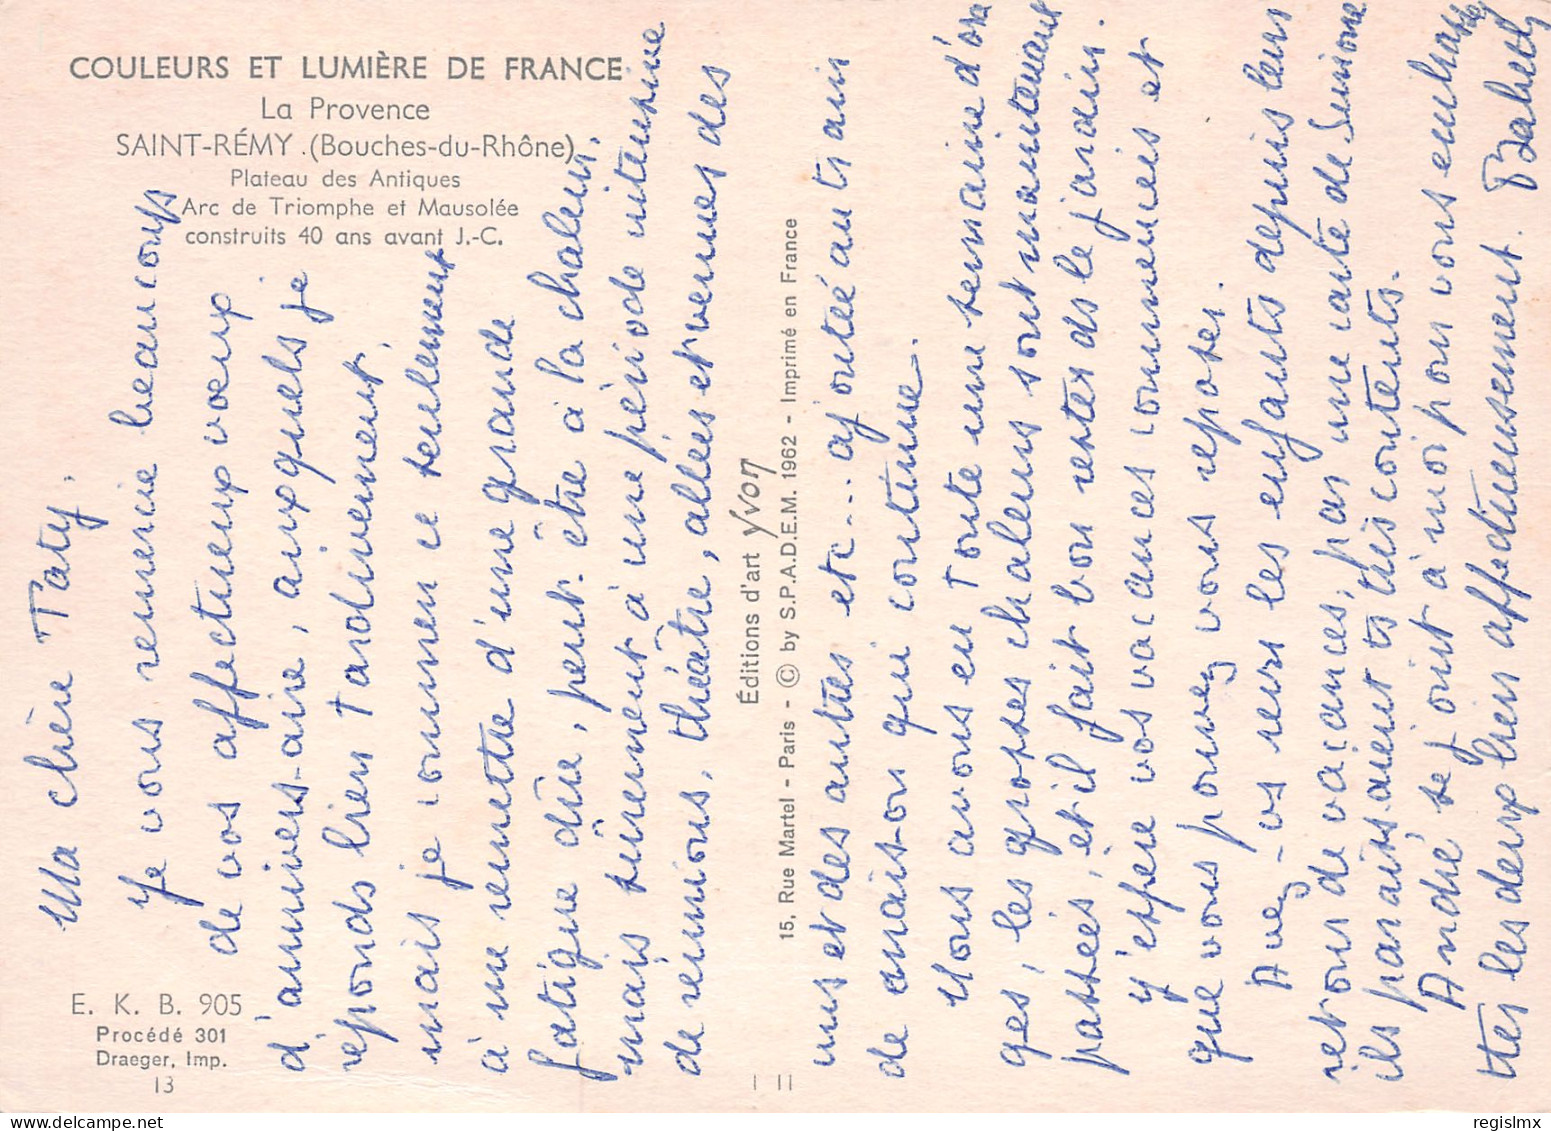 COULEURS ET LUMIÈRE DE FRANCE
La Provence
SAINT-RÉMY (Bouches-du-Rhône)
Plateau des Antiques
Arc de Triomphe et Mausolée
construits 40 ans avant J.-C.
E. K. B. 905
Procédé 301
Draeger, Imp.
13
Éditions d'art Yvon
15, Rue Martel - Paris - © by S.P.A.D.E.M. 1962 - Imprimé en France
I II
Ma chère Taty,
Je vous remercie beaucoup
de vos affectueux vœux
d'annivers-aire, auxquels je
réponds bien tardivement,
mais je commence seulement
à me remettre d'une grande
fatigue dûe, peut-être à la chaleur,
mais sûrement à une période intensive
de réunions, théâtre, allées et venues des
uns et des autres etc... ajouté au train
de maison qui continue.
Nous avons eu toute une semaine d'ora
ges, les grosses chaleurs sont maintenant
passées, et il fait bon rester ds le jardin.
J'espère vos vacances commencées et
que vous pouvez vous reposer.
Avez-vs revu les enfants depuis leurs
retour de vacances, par une carte de Simone
ils paraissaient ts très contents.
André se joint à moi pour vous embrasser
ttes les deux bien affectueusement. Babeth
regislmx